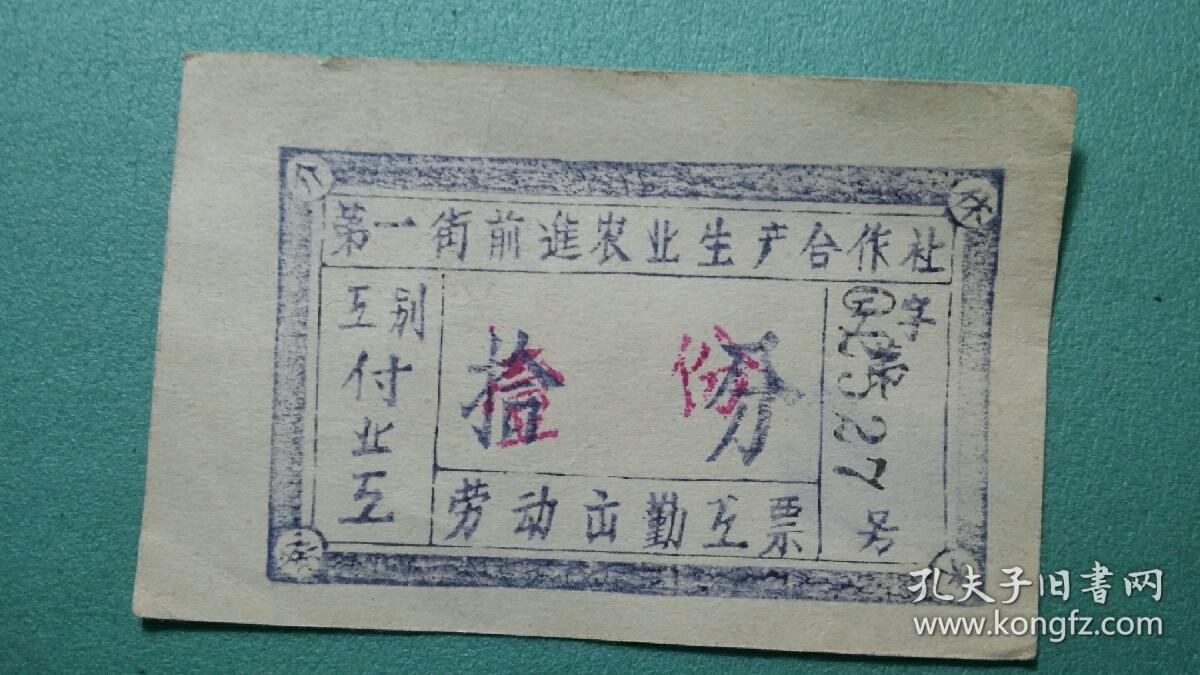 第一街前進农业生产合作社
工别
付业工
拾分
劳动出勤工票
字第527号
孔夫子旧書网
www.kongfz.com